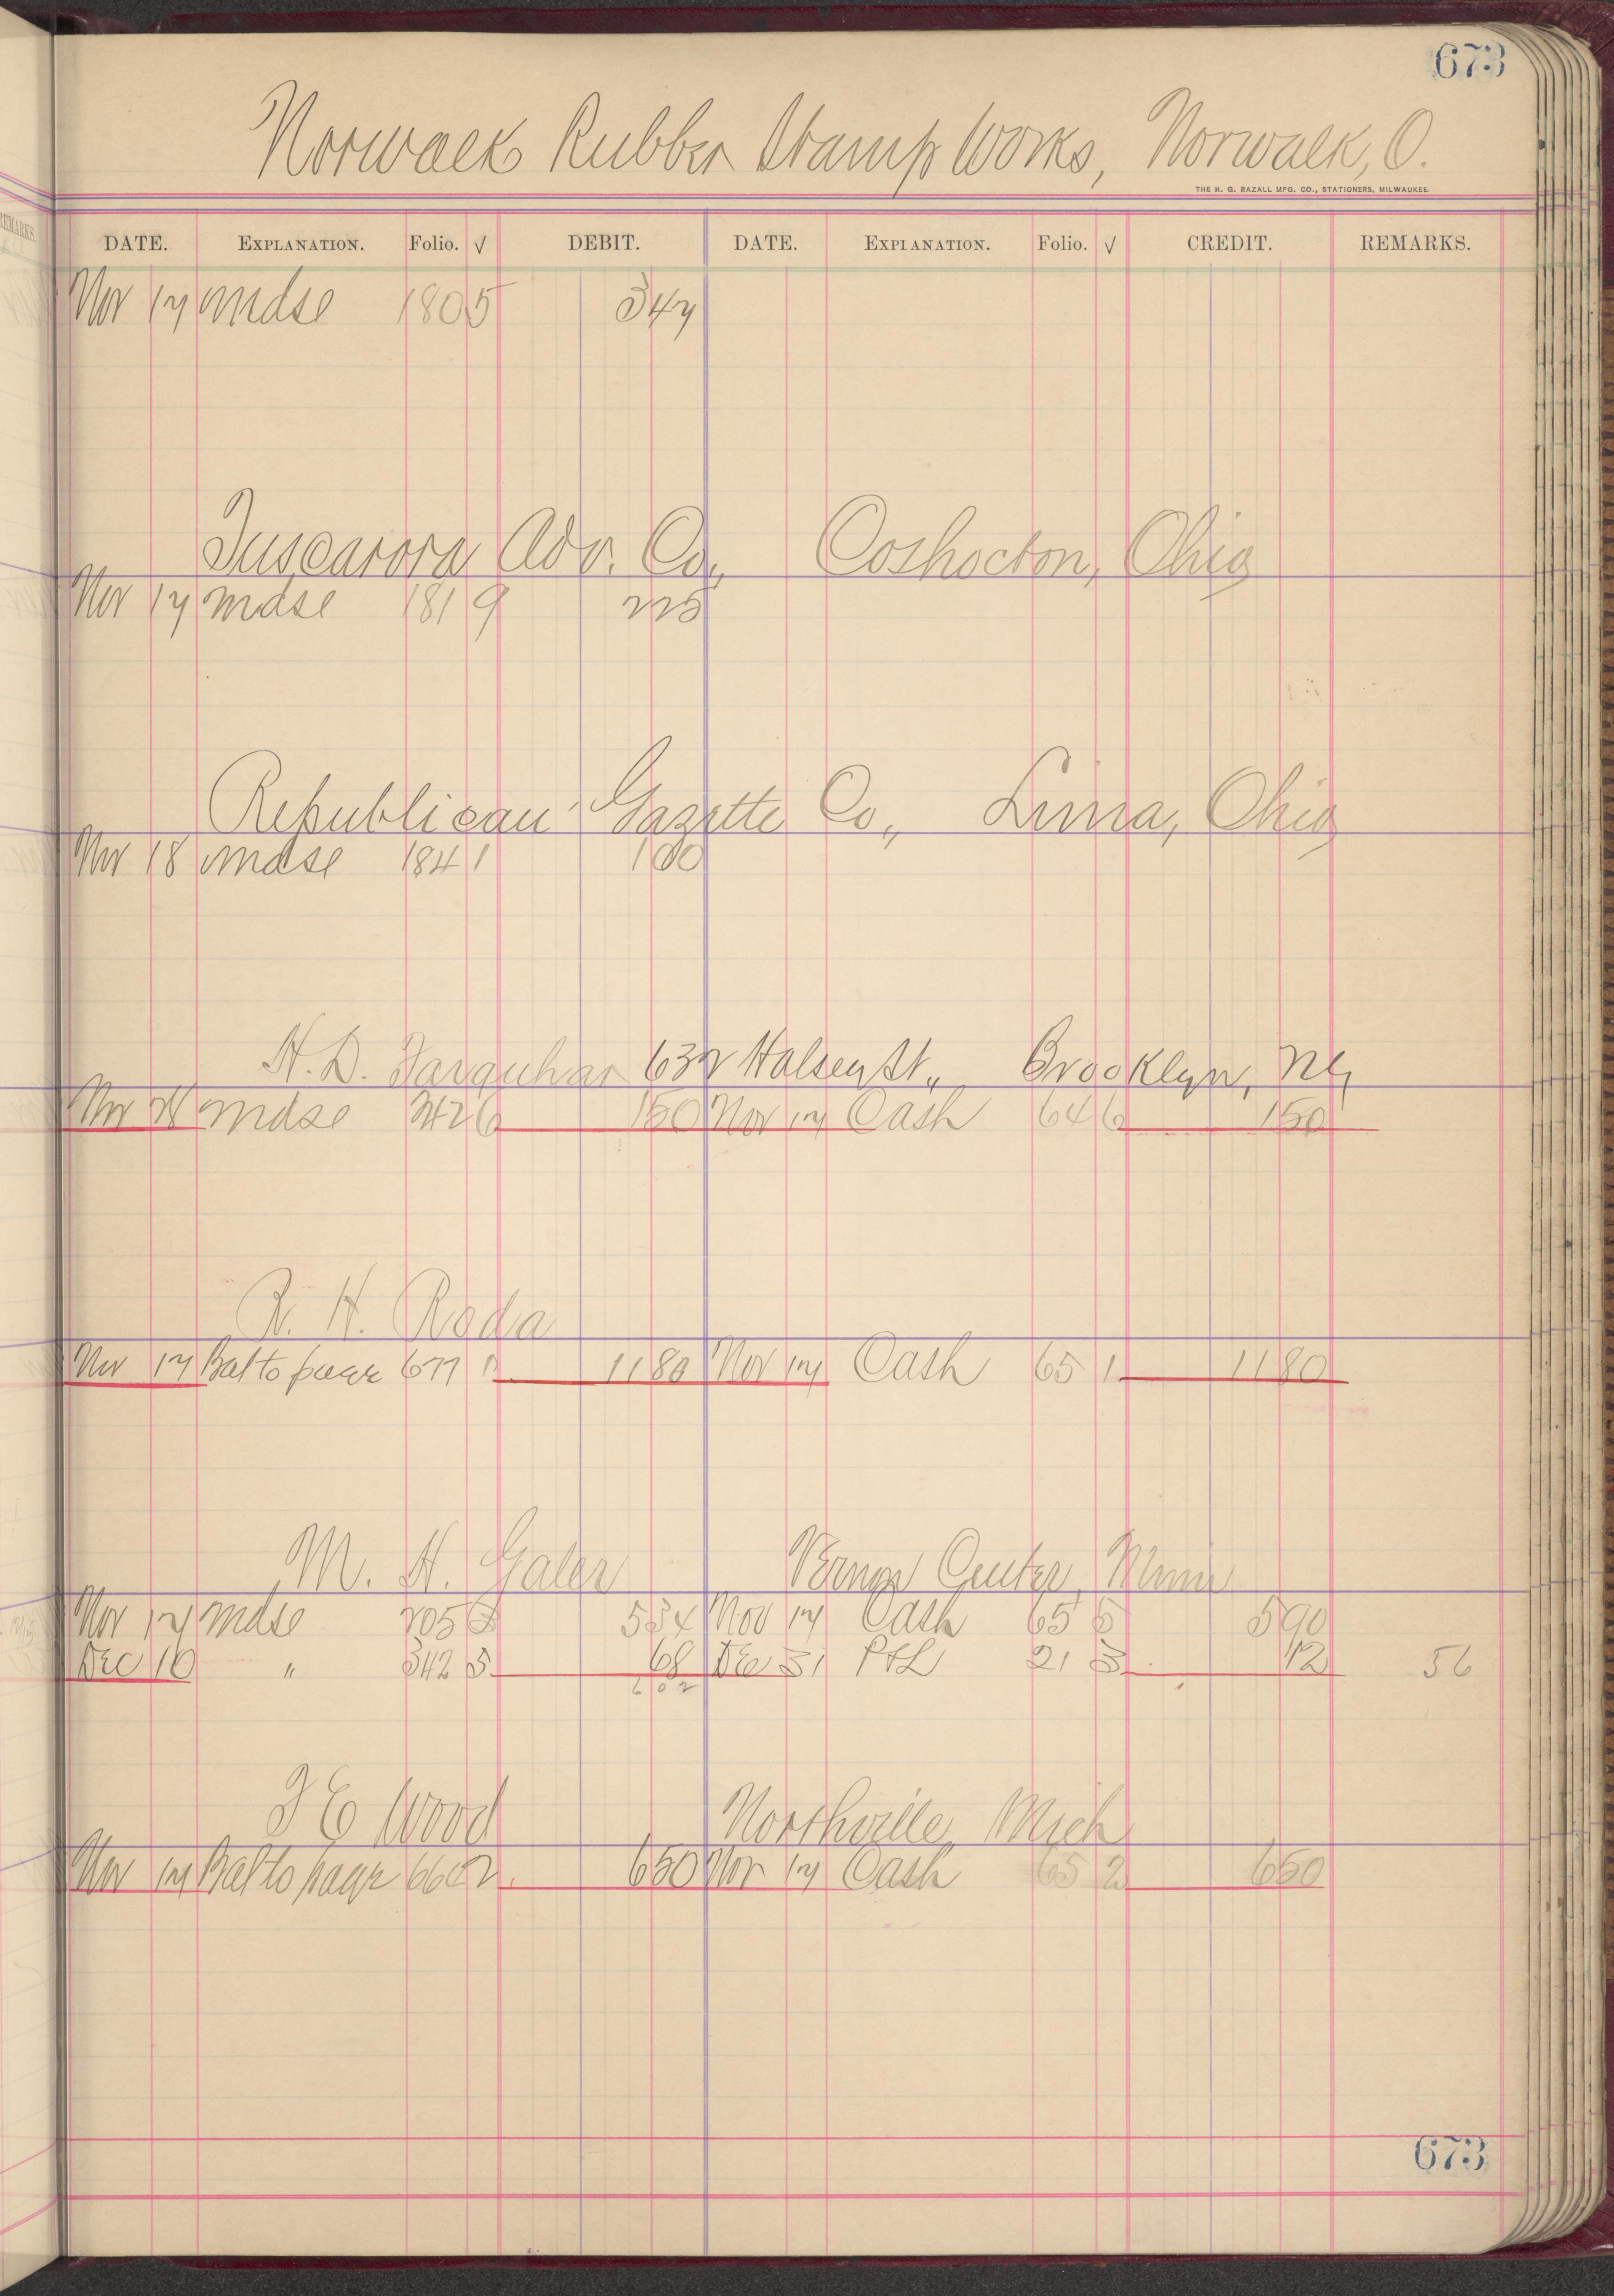 673
Norwalk Rubber Stamp Works, Norwalk, O.
THE H. G. RAZALL MFG. CO., STATIONERS, MILWAUKEE.
DATE. EXPLANATION. Folio. √ DEBIT. DATE. EXPLANATION. Folio. √ CREDIT. REMARKS.
Nov 17 mdse 1805 347
Tuscarora Adv. Co., Coshocton, Ohio
Nov 17 mdse 1819 225
Republican Gazette Co., Lima, Ohio
Nov 18 mdse 1841 100
H. D. Farquhar 632 Halsey St., Brooklyn, NY,
Nov mdse 150 Nov 17 Cash 646 150
R. H. Roda
Nov 17 Bal to page 671 1180 Nov 17 Cash 651 1180
M. H. Galer Vernon Center, Minn
Nov 17 mdse 205 534 Nov 17 Cash 65 590
Dec 10 " 342 5 68 Dec 31 P&L 21 3 12 56
602
F E Wood Northville, Mich
Nov 17 Bal to page 66 650 Nov 17 Cash 652 650
673